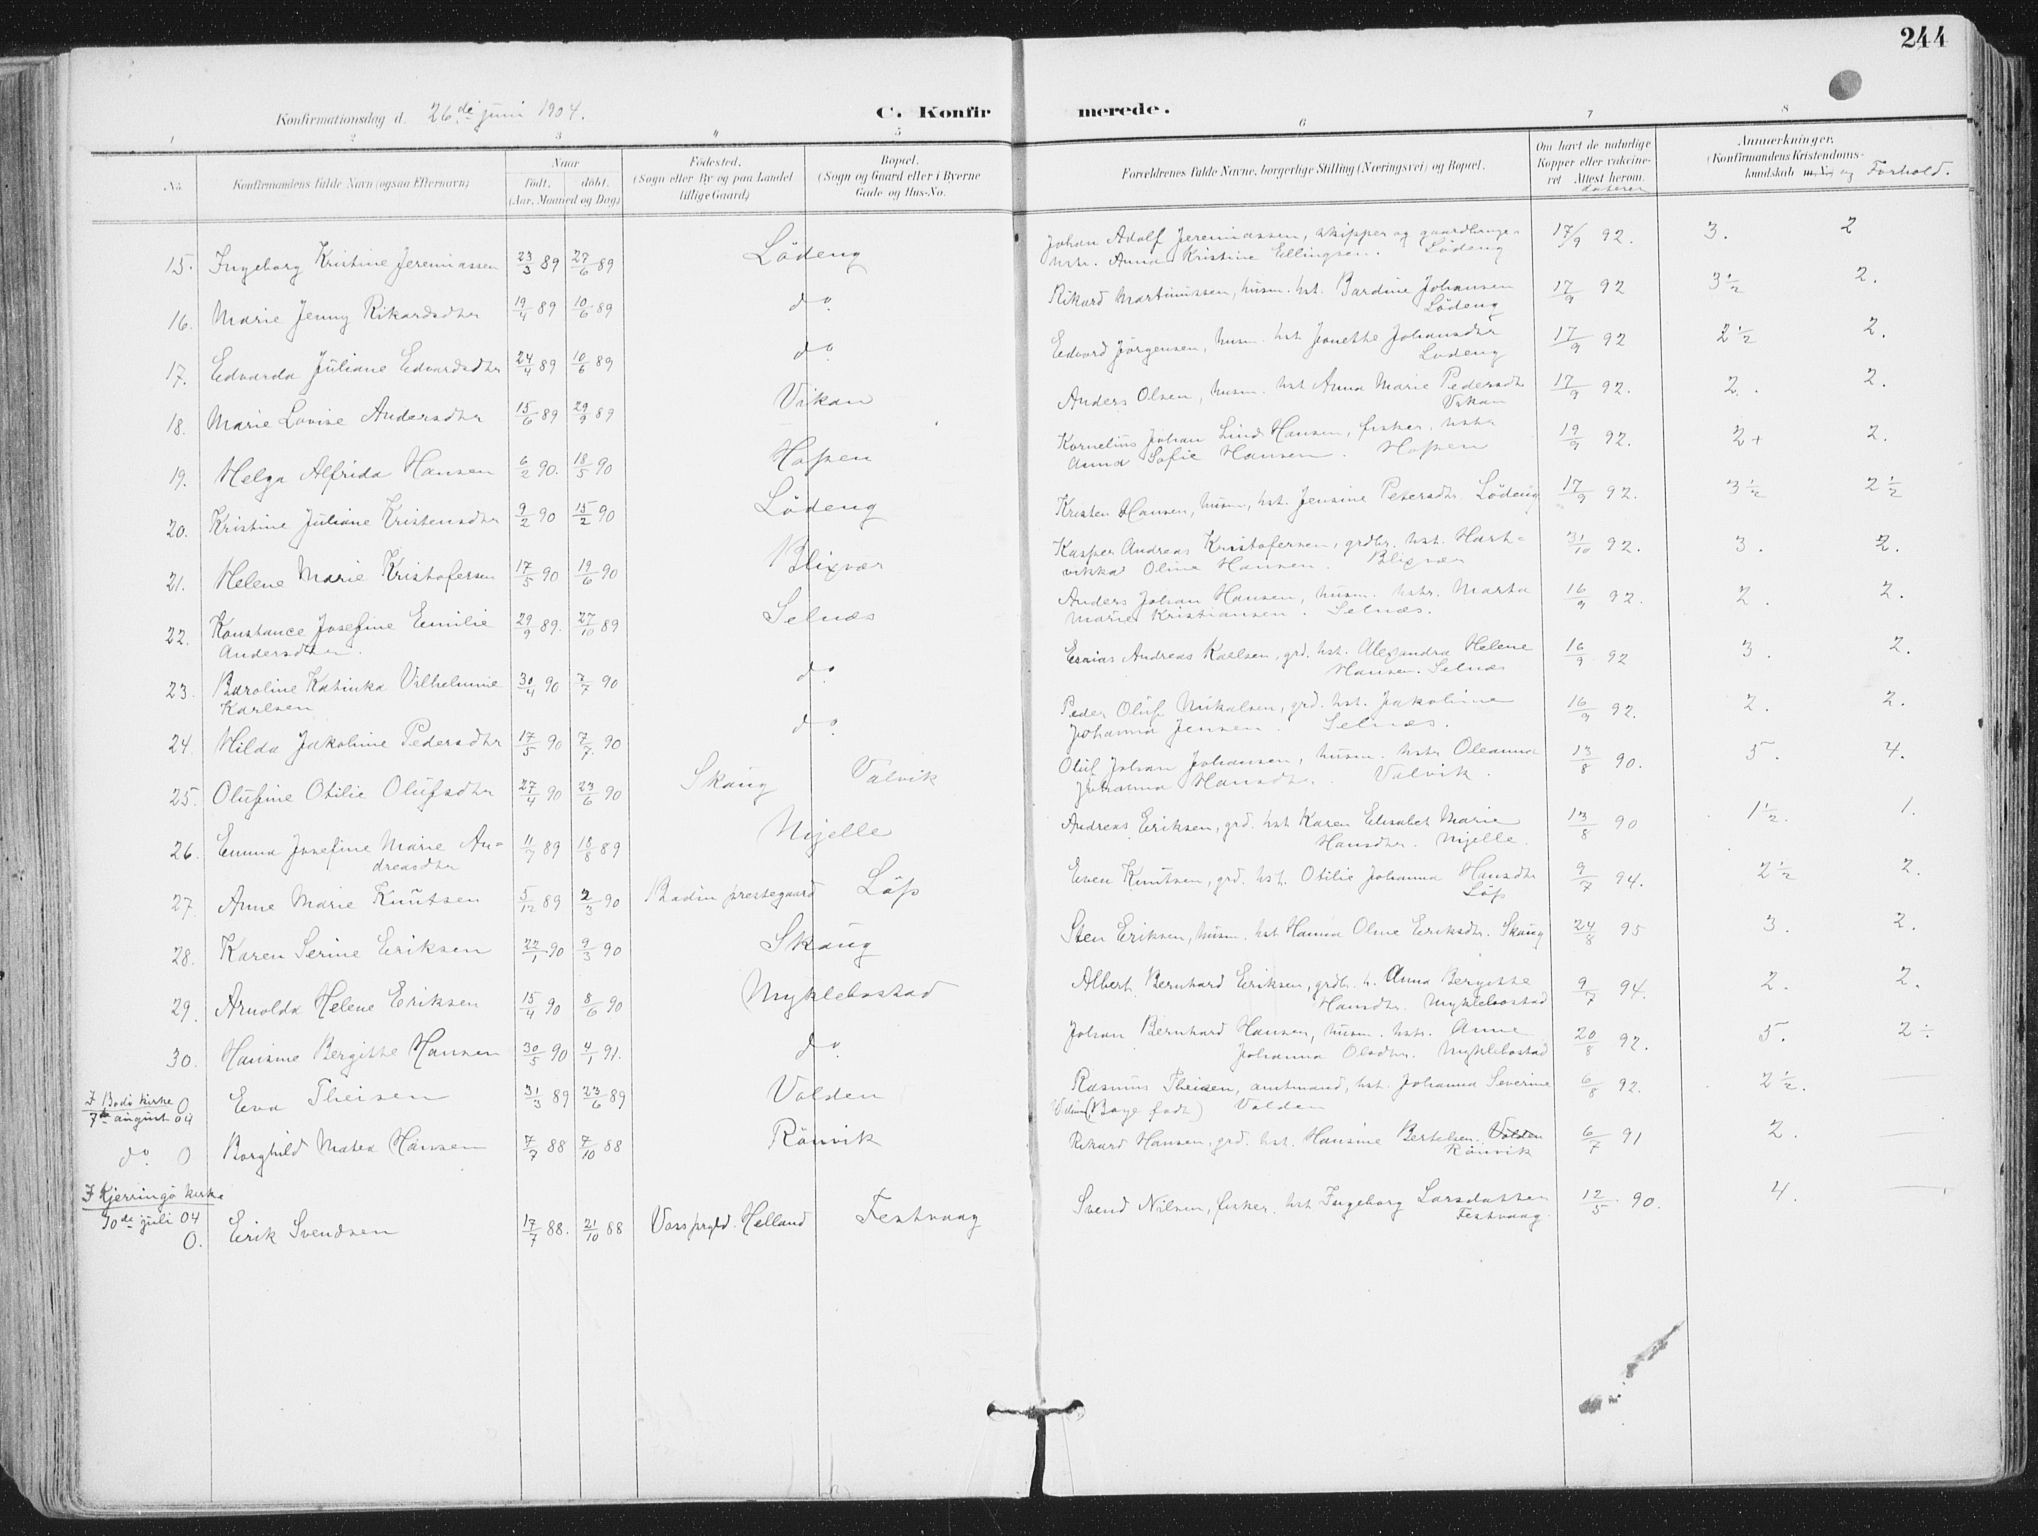 244
Konfirmationsdag d. 26de juni 1904.
C. Konfirmerede.
1 2 3 4 5 6 7 8
No.
Konfirmandens fulde Navn (ogsaa Efternavn)
Naar
født, døbt.
(Aar, Maaned og Dag)
Fødested.
(Sogn eller By og paa Landet
tillige Gaard)
Bopæl.
(Sogn og Gaard eller i Byerne
Gade og Hus-No.
Forældrenes fulde Navne, borgerlige Stilling (Næringsvei) og Bopæl.
Om havt de naturlige
Kopper eller vakcine-
ret Attest herom.
dateret
Anmærkninger.
(Konfirmandens Kristendoms-
kundskab m. V.) og Forhold.
15. Ingeborg Kristine Jeremiassen 23/3 89 27/6 89 Lödeng Johan Adolf Jeremiassen, skipper og gaardbruger 17/9 92. 3. 2
hstr. Anna Kristine Ellingsen. Lödeng
16. Marie Jenny Rikardsdtr 19/4 89 10/6 89 do. Rikard Martinussen, husm. hst. Bardine Johansen 17/9 92 3 1/2 2.
Lödeng
17. Edvarda Juliane Edvardsdtr 24/4 89 10/6 89 do. Edvard Jörgensen, husm. hst Jonette Johansdtr 17/9 92 2 1/2 2.
Lodeng
18. Marie Lovise Andersdtr 15/6 89 29/9 89 Vikan Anders Olsen, husm. hst Anna Marie Pedersdtr 17/9 92. 2. 2.
Vikan
19. Helga Alfrida Hansen 6/2 90. 18/5 90 Hopen Kornelius Johan Lind Hansen, fisker, hstr 19/9 92. 2+ 2.
Anna Sofie Hansen. Hopen
20. Kristine Juliane Kristensdtr 9/2 90 15/2 90 Lödeng Kristen Hansen, husm, hst. Jensine Petersdtr. Lödeng 17/9 92. 3 1/2 2 1/2
21. Helene Marie Kristofersen 17/5 90 19/6 90 Blixvær Kasper Andreas Kristofersen, grdbr. hst. Hart- 31/10 92. 3. 2.
vikka Oline Hansen. Blixvær
22. Konstance Josefine Emilie 29/9 89. 27/10 89 Selnæs Anders Johan Hansen, husm. hstr. Marta 16/9 92. 2. 2.
Andersdtr. Marie Kristiansen. Selnæs.
23. Baroline Katinka Vilhelmine 30/4 90 7/7 90 do. Esaias Andreas Karlsen, grd. hst. Alexandra Helene 16/9 92 3. 2.
Karlsen Hansen. Selnæs
24. Hilda Jakobine Pedersdtr 17/5 90 7/7 90 do. Peder Oluf Mikalsen, grd. hst. Jakobine 16/9 92. 2. 2.
Johanna Jensen. Selnæs.
25. Olufine Otilie Olufsdtr 27/4 90 23/6 90 Skaug Valvik Oluf Johan Johansen, husm. hstr Oleanna 13/8 90. 5. 4.
Johanna Hansdtr. Valvik.
26. Emma Josefine Marie An- 11/7 89 18/8 89 Mjelle Andreas Eriksen, grd. hst Karen Elisabet Marie 13/8 90 1 1/2. 1.
dreasdtr Hansdtr. Mjelle.
27. Anne Marie Knutsen 5/12 89 2/3 90 Bodin prestegaard Löp Even Knutsen, grd. hst. Otilie Johanna Hansdtr 9/7 94. 2 1/2 2.
Löp
28. Karen Serine Eriksen 22/1 90 9/3 90 Skaug Sten Eriksen, husm. hst Hanna Oline Eriksdtr. Skaug 24/8 95 3. 2.
29. Arnolda Helene Eriksen 15/4 90 8/6 90 Myklebostad Albert Bernhard Eriksen, grdbr. h. Anna Bergitte 9/7 94. 2. 2.
Hansdtr. Myklebostad
30. Hansine Bergitte Hansen 30/5 90 4/1 91. do. Johan Bernhard Hansen, husm. hstr. Anne 20/8 92. 5. 2÷
Johanna Olsdtr. Myklebostad
I Bodö kirke 0 Eva Theisen 31/3 89 23/6 89 Volden Rasmus Theisen, amtmand, hst. Johanna Severine 6/8 92. 2 1/2. —
7de august 04 (Boye født) Volden
do. 0 Borghild Matea Hansen 7/7 88 7/10 88 Rönvik Rikard Hansen, grd. hst. Hansine Bertelsen. Volden 6/7 91 2. —
Rönvik
I Kjerringö kirke
10de juli 04 0. Erik Svendsen 17/7 88. 21/10 88 Voss prgld. Helland Festvaag Svend Nilsen, fisker, hst Ingeborg Larsdatter 12/5 90. 4. —
Festvaag.